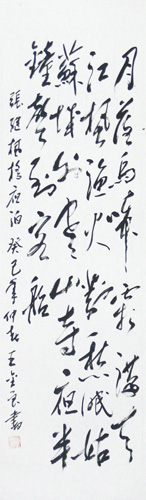 月落烏啼霜滿天
江楓漁火對愁眠姑
蘇城外寒山寺夜半
鐘聲到客船
張繼楓橋夜泊 癸巳年仲春 王 書